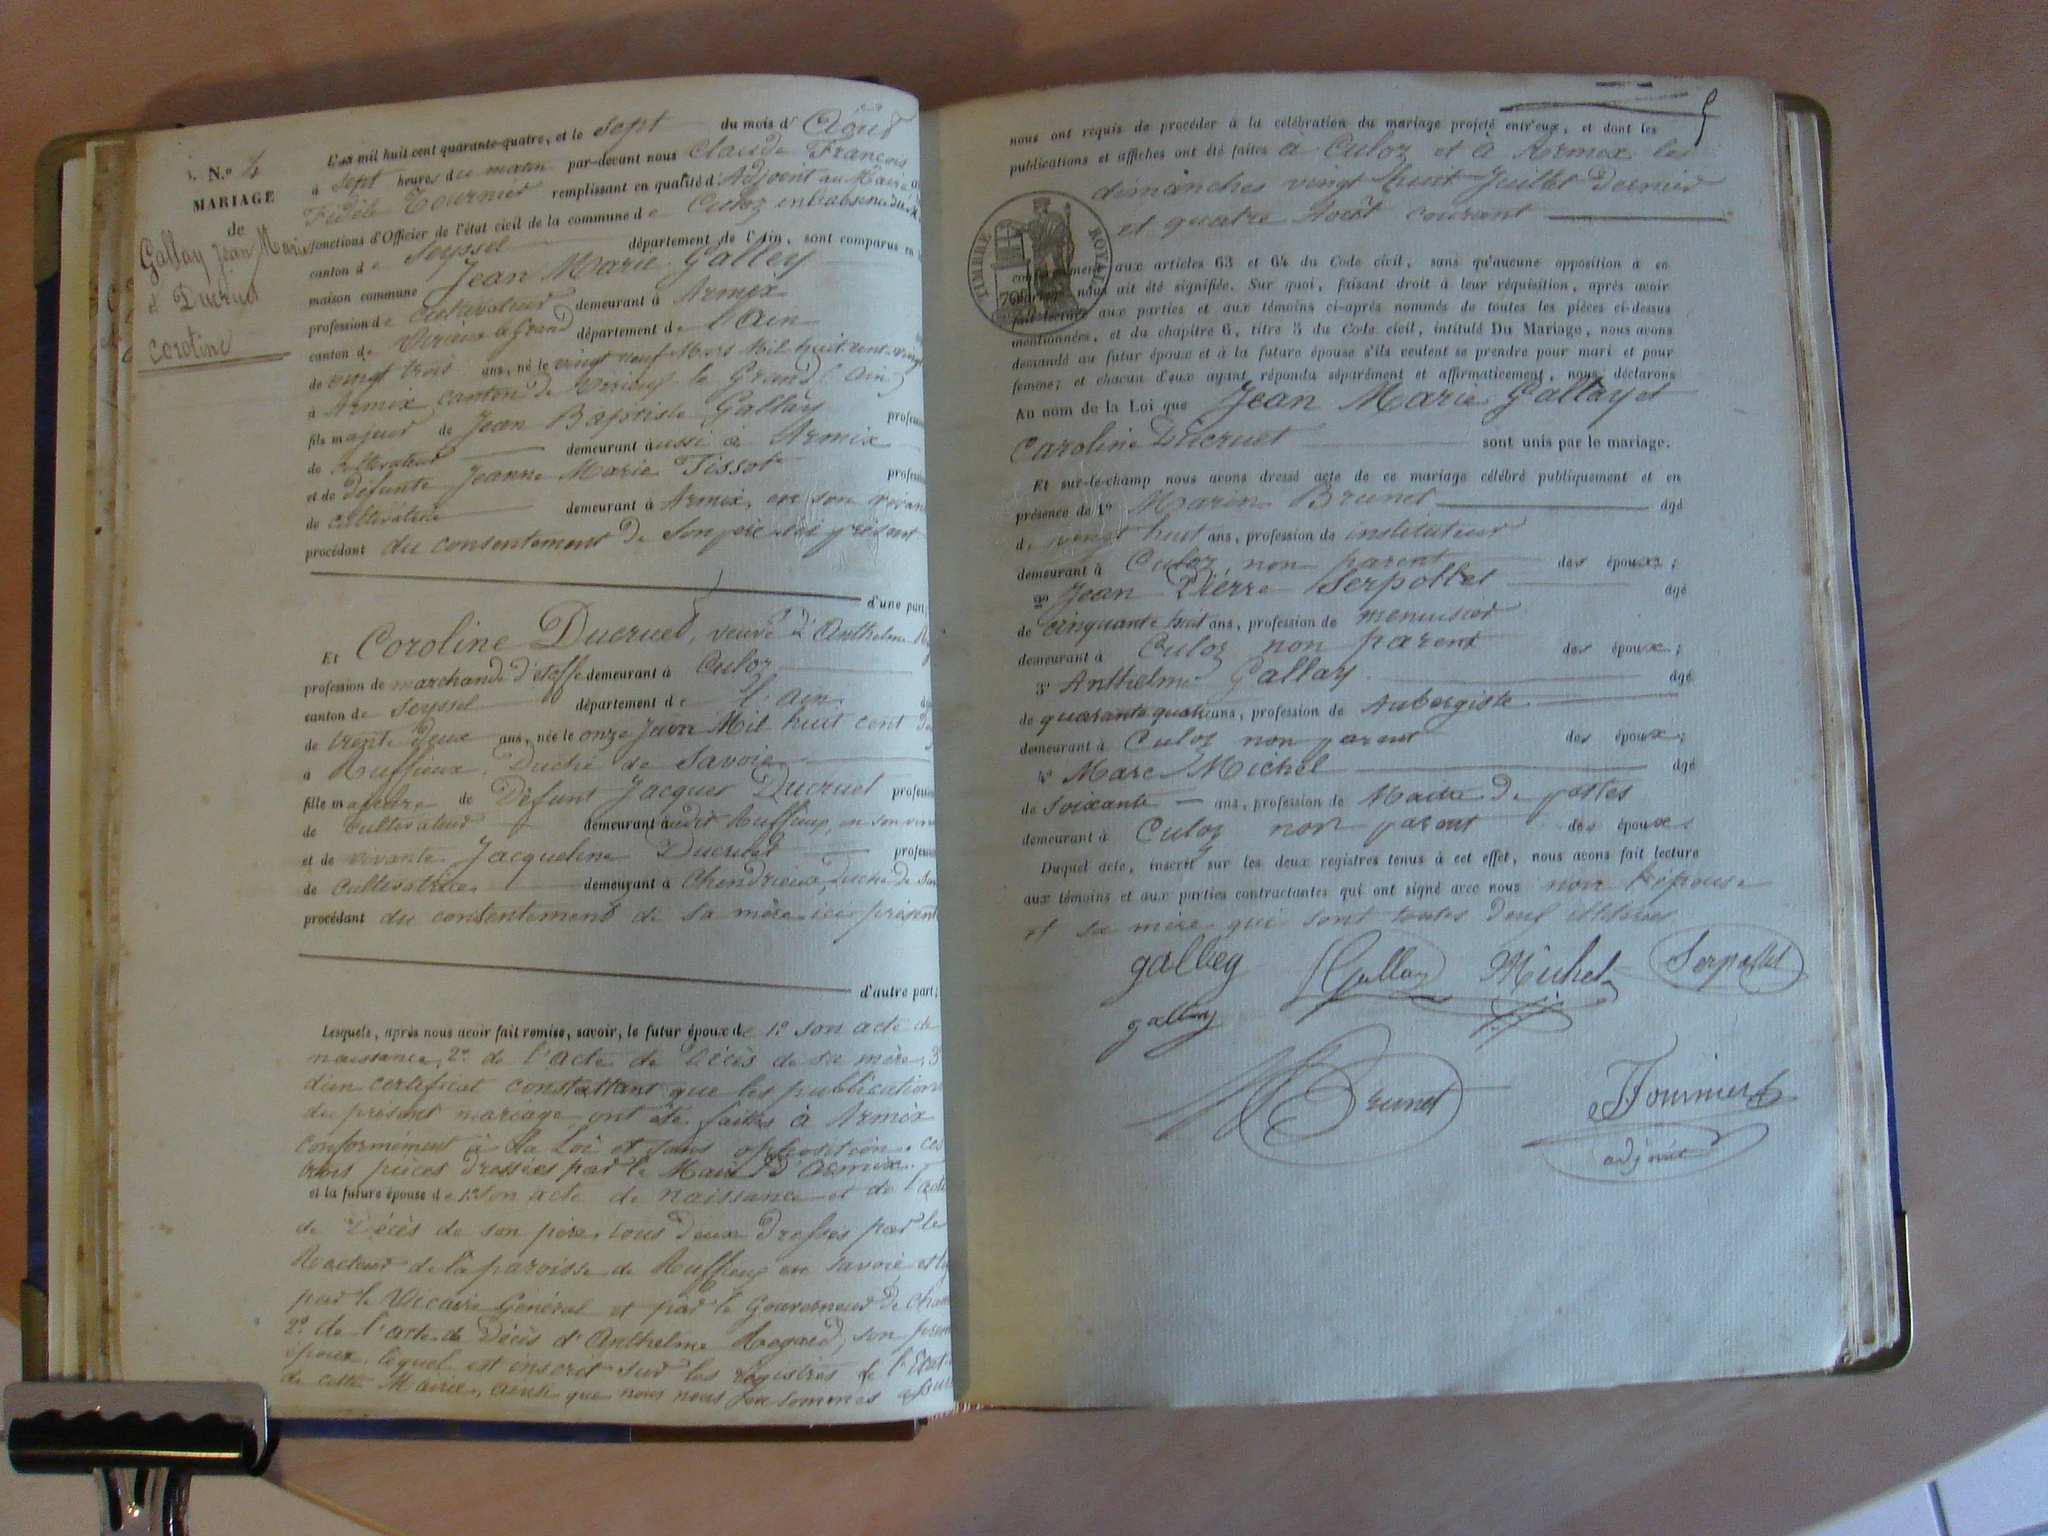 N.o 4
MARIAGE
de
Gallay Jean Marie
et Ducruet
Coroline
L'an mil huit cent quarante-quatre, et le sept du mois d'Août
à sept heures du matin par-devant nous Claude François
Fidèle Fournier remplissant en qualité d'Adjoint au Maire
fonctions d'Officier de l'état civil de la commune de Culoz en l'absence du
canton de Seyssel département de l'Ain, sont comparus en
maison commune Jean Marie Galley
profession de cultivateur demeurant à Armix
canton de Virieu le Grand département de l'Ain
de vingt trois ans, né le vingt neuf Mars Mil huit cent vingt
à Armix canton de Virieux le Grand (Ain)
fils majeur de Jean Baptiste Gallay profession
de cultivateur demeurant aussi à Armix
et de défunte Jeanne Marie Tissot profession
de cultivatrice demeurant à Armix, en son vivant
procédant du consentement de son père ici présent
d'une part;
Et Coroline Ducruet, veuve d'Anthelme
profession de marchande d'étoffe demeurant à Culoz
canton de Seyssel département de l'Ain
de trente deux ans, née le onze Mil huit cent
à Ruffieux, Duché de Savoie
fille majeure de Défunt Jacques Ducruet profession
de cultivateur demeurant audit Ruffieux, en son
et de vivante Jacqueline Ducruet profession
de cultivatrice demeurant à Chindrieux, Duché de
procédant du consentement de sa mère ici présent
d'autre part;
Lesquels, après nous avoir fait remise, savoir, le futur époux de 1.o son acte de
naissance, 2.o de l'acte de décès de sa mère, 3
d'un certificat constattant que les publications
du présent mariage ont été faites à Armix
conformément à la Loi et sans opposition. ces
trois pièces dressées par le Maire d'Armix.
et la future épouse de 1.o son acte de naissance et de l'acte
de Décès de son père, tous deux dressés par le
Recteur de la paroisse de Ruffieux en Savoie et
par le Vicaire Général et par le Gouverneur de
2.o de l'acte de Décès d'Anthelme son
époux, lequel est inscrit sur les registres de l'État
de cette Mairie, ainsi que nous nous en sommes
5
nous ont requis de procéder à la célébration du mariage projeté entr'eux, et dont les
publications et affiches ont été faites à Culoz et à Armix les
dimanches vingt huit Juillet dernier
et quatre Août courant
TIMBRE ROYAL
70
conformément aux articles 63 et 64 du Code civil, sans qu'aucune opposition à ce
mariage nous ait été signifiée. Sur quoi, faisant droit à leur réquisition, après avoir
fait lecture aux parties et aux témoins ci-après nommés de toutes les pièces ci-dessus
mentionnées, et du chapitre 6, titre 5 du Code civil, intitulé Du Mariage, nous avons
demandé au futur époux et à la future épouse s'ils veulent se prendre pour mari et pour
femme; et chacun d'eux ayant répondu séparément et affirmativement, nous déclarons
Au nom de la Loi que Jean Marie Gallay et
Caroline Ducruet sont unis par le mariage.
Et sur-le-champ nous avons dressé acte de ce mariage célébré publiquement et en
présence de 1.o Marin Brunet âgé
de vingt huit ans, profession de instituteur
demeurant à Culoz, non parent des époux;
2.o Jean Pierre Serpollet âgé
de cinquante huit ans, profession de menuisier
demeurant à Culoz non parent des époux;
3.o Anthelme Gallay âgé
de quarante quatre ans, profession de Aubergiste
demeurant à Culoz non parent des époux;
4.o Marc Michel âgé
de soixante ans, profession de Maitre de postes
demeurant à Culoz non parent des époux.
Duquel acte, inscrit sur les deux registres tenus à cet effet, nous avons fait lecture
aux témoins et aux parties contractantes qui ont signé avec nous non l'épouse
et sa mère qui sont toutes deux illitérées
galley Gallay Michel Serpollet
gallay
Brunet Fournier
adjoint